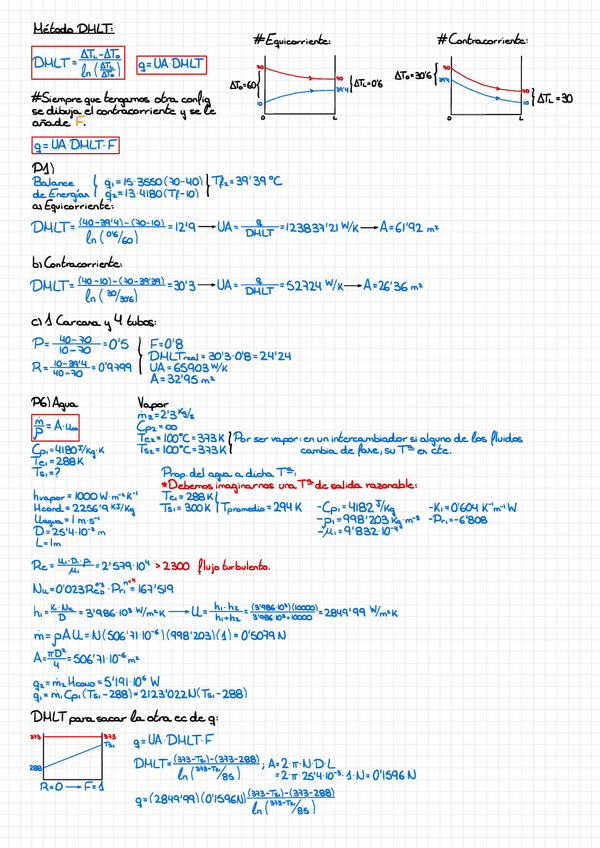 Método DMLT:
DMLT = (ΔT_L - ΔT_0) / ln(ΔT_L/ΔT_0)
q = UA·DMLT
#Equicorriente:
70
10
40
39'4
ΔT_0 = 60
ΔT_L = 0'6
0
L
#Contracorriente:
70
39'4
40
10
ΔT_0 = 30'6
ΔT_L = 30
0
L
#Siempre que tengamos otra config
se dibuja el contracorriente y se le
añade F.
q = UA·DMLT·F
P1)
Balance
de Energías
q̇1 = 15·3550(70-40)
q̇2 = 13·4180(Tf-10)
Tf2 = 39'39 °C
a) Equicorriente:
DMLT = ((40-39'4)-(70-10)) / ln(0'6/60) = 12'9 → UA = q/DMLT = 123837'21 W/K → A = 61'92 m²
b) Contracorriente:
DMLT = ((40-10)-(70-39'39)) / ln(30/30'6) = 30'3 → UA = q/DMLT = 52724 W/K → A = 26'36 m²
c) 1 Carcasa y 4 tubos:
P = (40-70)/(10-70) = 0'5
R = (10-39'4)/(40-70) = 0'9799
F = 0'8
DMLT real = 30'3·0'8 = 24'24
UA = 65903 W/K
A = 32'95 m²
P6) Agua
ṁ/ρ = A·u∞
Cp1 = 4180 J/Kg·K
Te1 = 288K
Ts1 = ?
Vapor
ṁ2 = 2'3 Kg/s
Cp2 = ∞
Te2 = 100°C = 373K
Ts2 = 100°C = 373K
Por ser vapor: en un intercambiador si alguno de los fluidos
cambia de fase, su Tª es cte.
Prop. del agua a dicha Tª:
*Debemos imaginarnos una Tª de salida razonable:
hvapor = 1000 W·m⁻²K⁻¹
Hcond = 2256'9 KJ/Kg
Uagua = 1 m·s⁻¹
D = 25'4·10⁻³ m
L = 1m
Te1 = 288K
Ts1 = 300K
Tpromedio = 294K
-Cp1 = 4182 J/Kg
-ρ1 = 998'203 Kg·m⁻³
-μ1 = 9'832·10⁻⁴
-K1 = 0'604 K⁻¹m⁻¹W
-Pr1 = 6'808
Re = (u1·D1·ρ1)/μ1 = 2'579·10⁴ > 2300 flujo turbulento.
Nu = 0'023Re_D^0'8·Pr1^n=0'4 = 167'519
h1 = K·Nu/D = 3'986·10³ W/m²K → U = h1·h2/(h1+h2) = (3'986·10³)(10000)/(3'986·10³+10000) = 2849'99 W/m²K
ṁ = ρAU = N(506'71·10⁻⁶)(998'203)(1) = 0'5079N
A = πD²/4 = 506'71·10⁻⁶ m²
q2 = ṁ2Hcond = 5'191·10⁶ W
q1 = ṁ1Cp1(Ts1-288) = 2123'022N(Ts1-288)
DMLT para sacar la otra ec de q:
373
288
373
Ts1
R=0 → F=1
q = UA·DMLT·F
DMLT = ((373-Ts1)-(373-288)) / ln((373-Ts1)/85) ; A = 2·π·N·D·L
= 2·π·25'4·10⁻³·1·N = 0'1596N
q = (2849'99)(0'1596N) ((373-Ts1)-(373-288)) / ln((373-Ts1)/85)